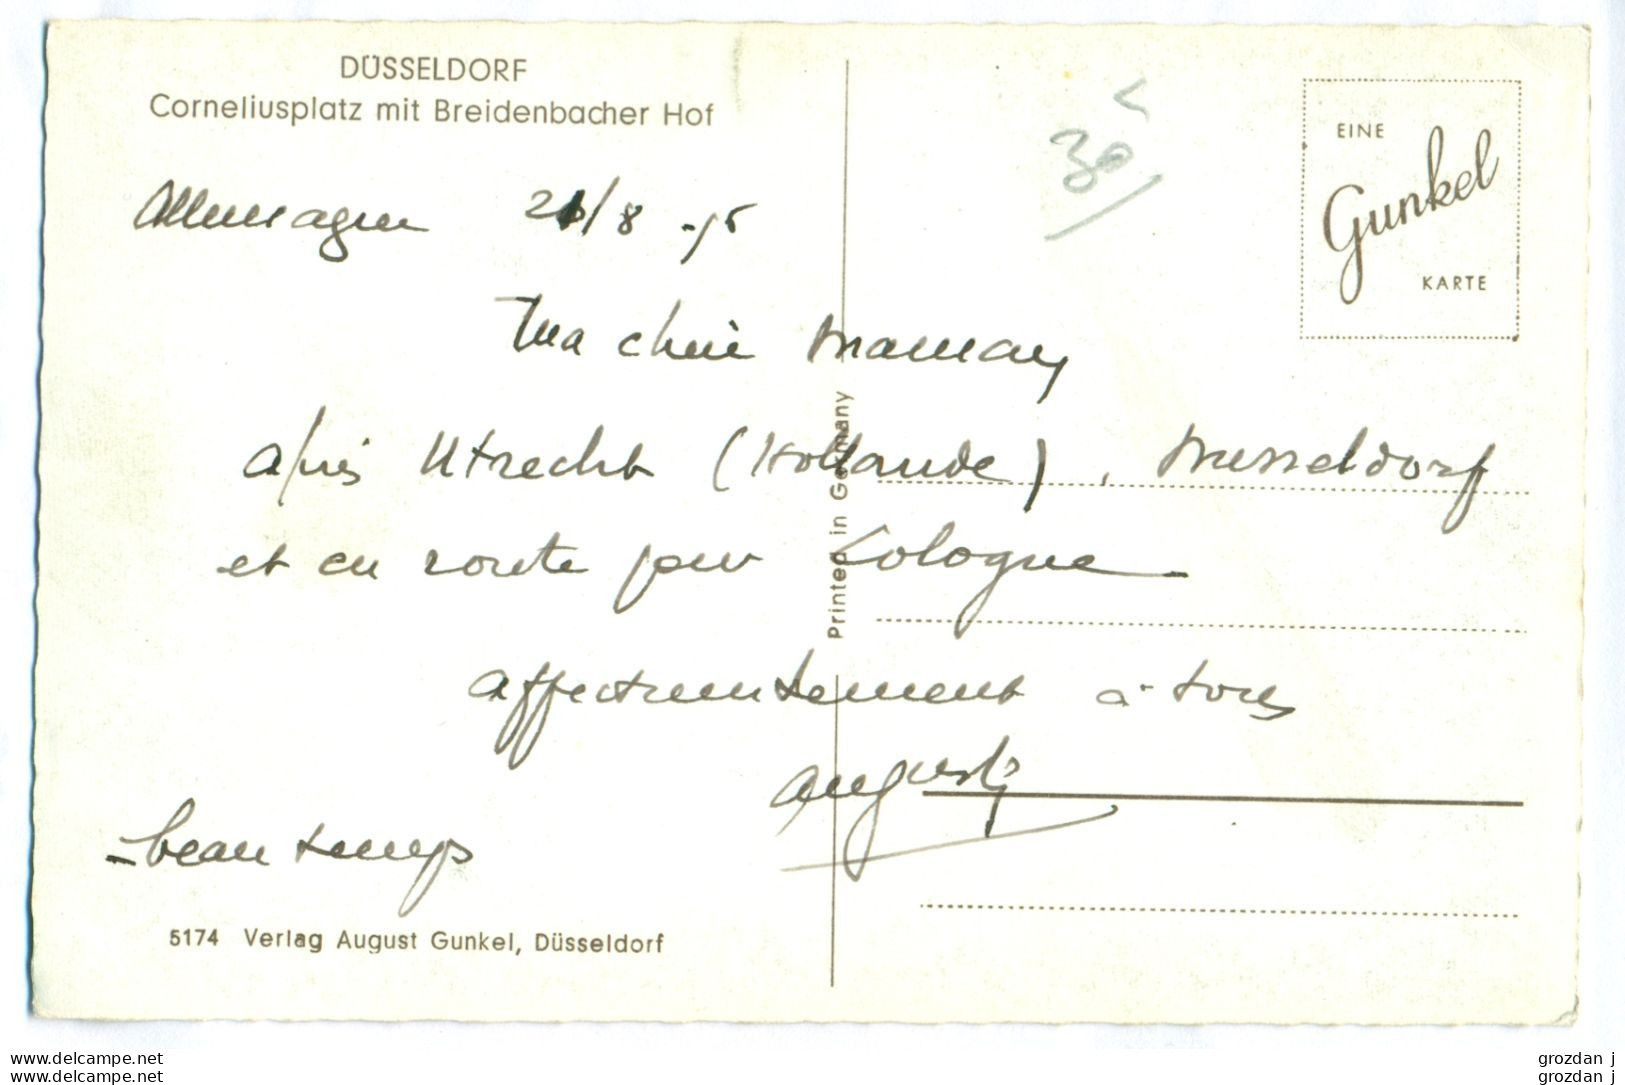 DÜSSELDORF
Corneliusplatz mit Breidenbacher Hof
EINE
Gunkel
KARTE
30
Allemagne 21/8
Ma chère maman
après Utrecht (Hollande), Dusseldorf
et en route pour Cologne
affectueusement à tous
beau temps
Printed in Germany
5174 Verlag August Gunkel, Düsseldorf
www.delcampe.net
www.delcampe.net
grozdan j
grozdan j